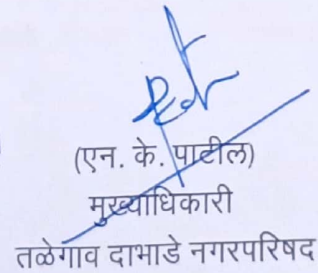 (एन. के. पाटील)
मुख्याधिकारी
तळेगाव दाभाडे नगरपरिषद